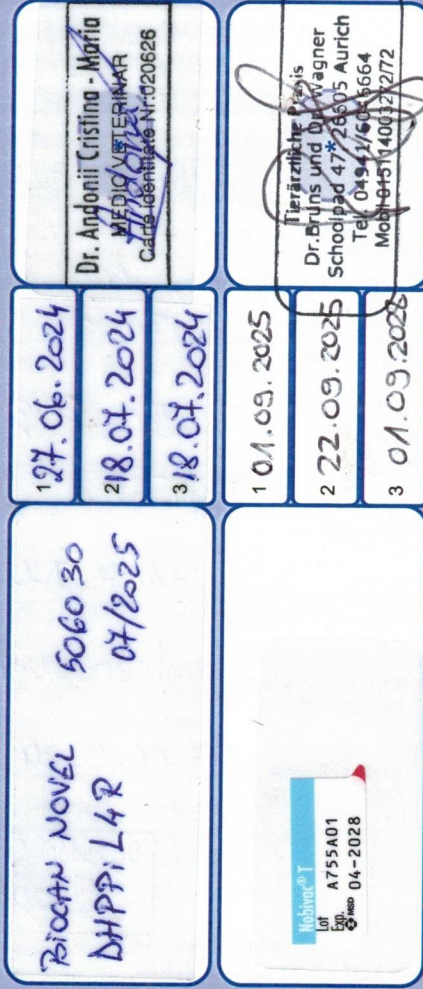 BIOCAN NOVEL 506030
DHPPi L4R 07/2025
1 27.06.2024
2 18.07.2024
3 18.07.2024
Dr. Andonii Cristina - Maria
MEDIC VETERINAR
Carte identitate Nr. 020626
Nobivac® T
Lot A755A01
Exp.
MSD 04-2028
1 01.09.2025
2 22.09.2025
3 01.09.2028
Tierärztliche Praxis
Dr. Bruns und Dr. Wagner
Schoolpad 47* 26605 Aurich
Tel. 04941/
Mobil